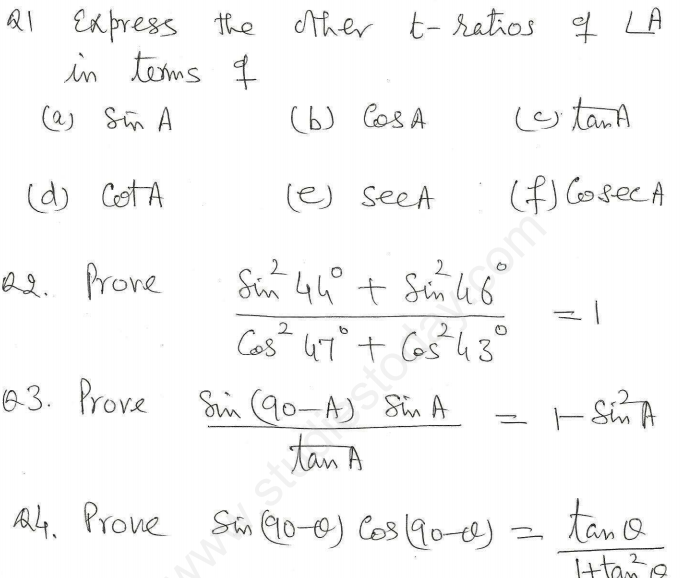 Q1 Express the other t-ratios of ∠A
in terms of
(a) Sin A (b) Cos A (c) tan A
(d) Cot A (e) Sec A (f) Cosec A
Q2. Prove (Sin² 44° + Sin² 46°) / (Cos² 47° + Cos² 43°) = 1
Q3. Prove Sin (90-A) Sin A / tan A = 1 - Sin² A
Q4. Prove Sin (90-θ) Cos (90-θ) = tan θ / (1+tan² θ)
www.studiestoday.com